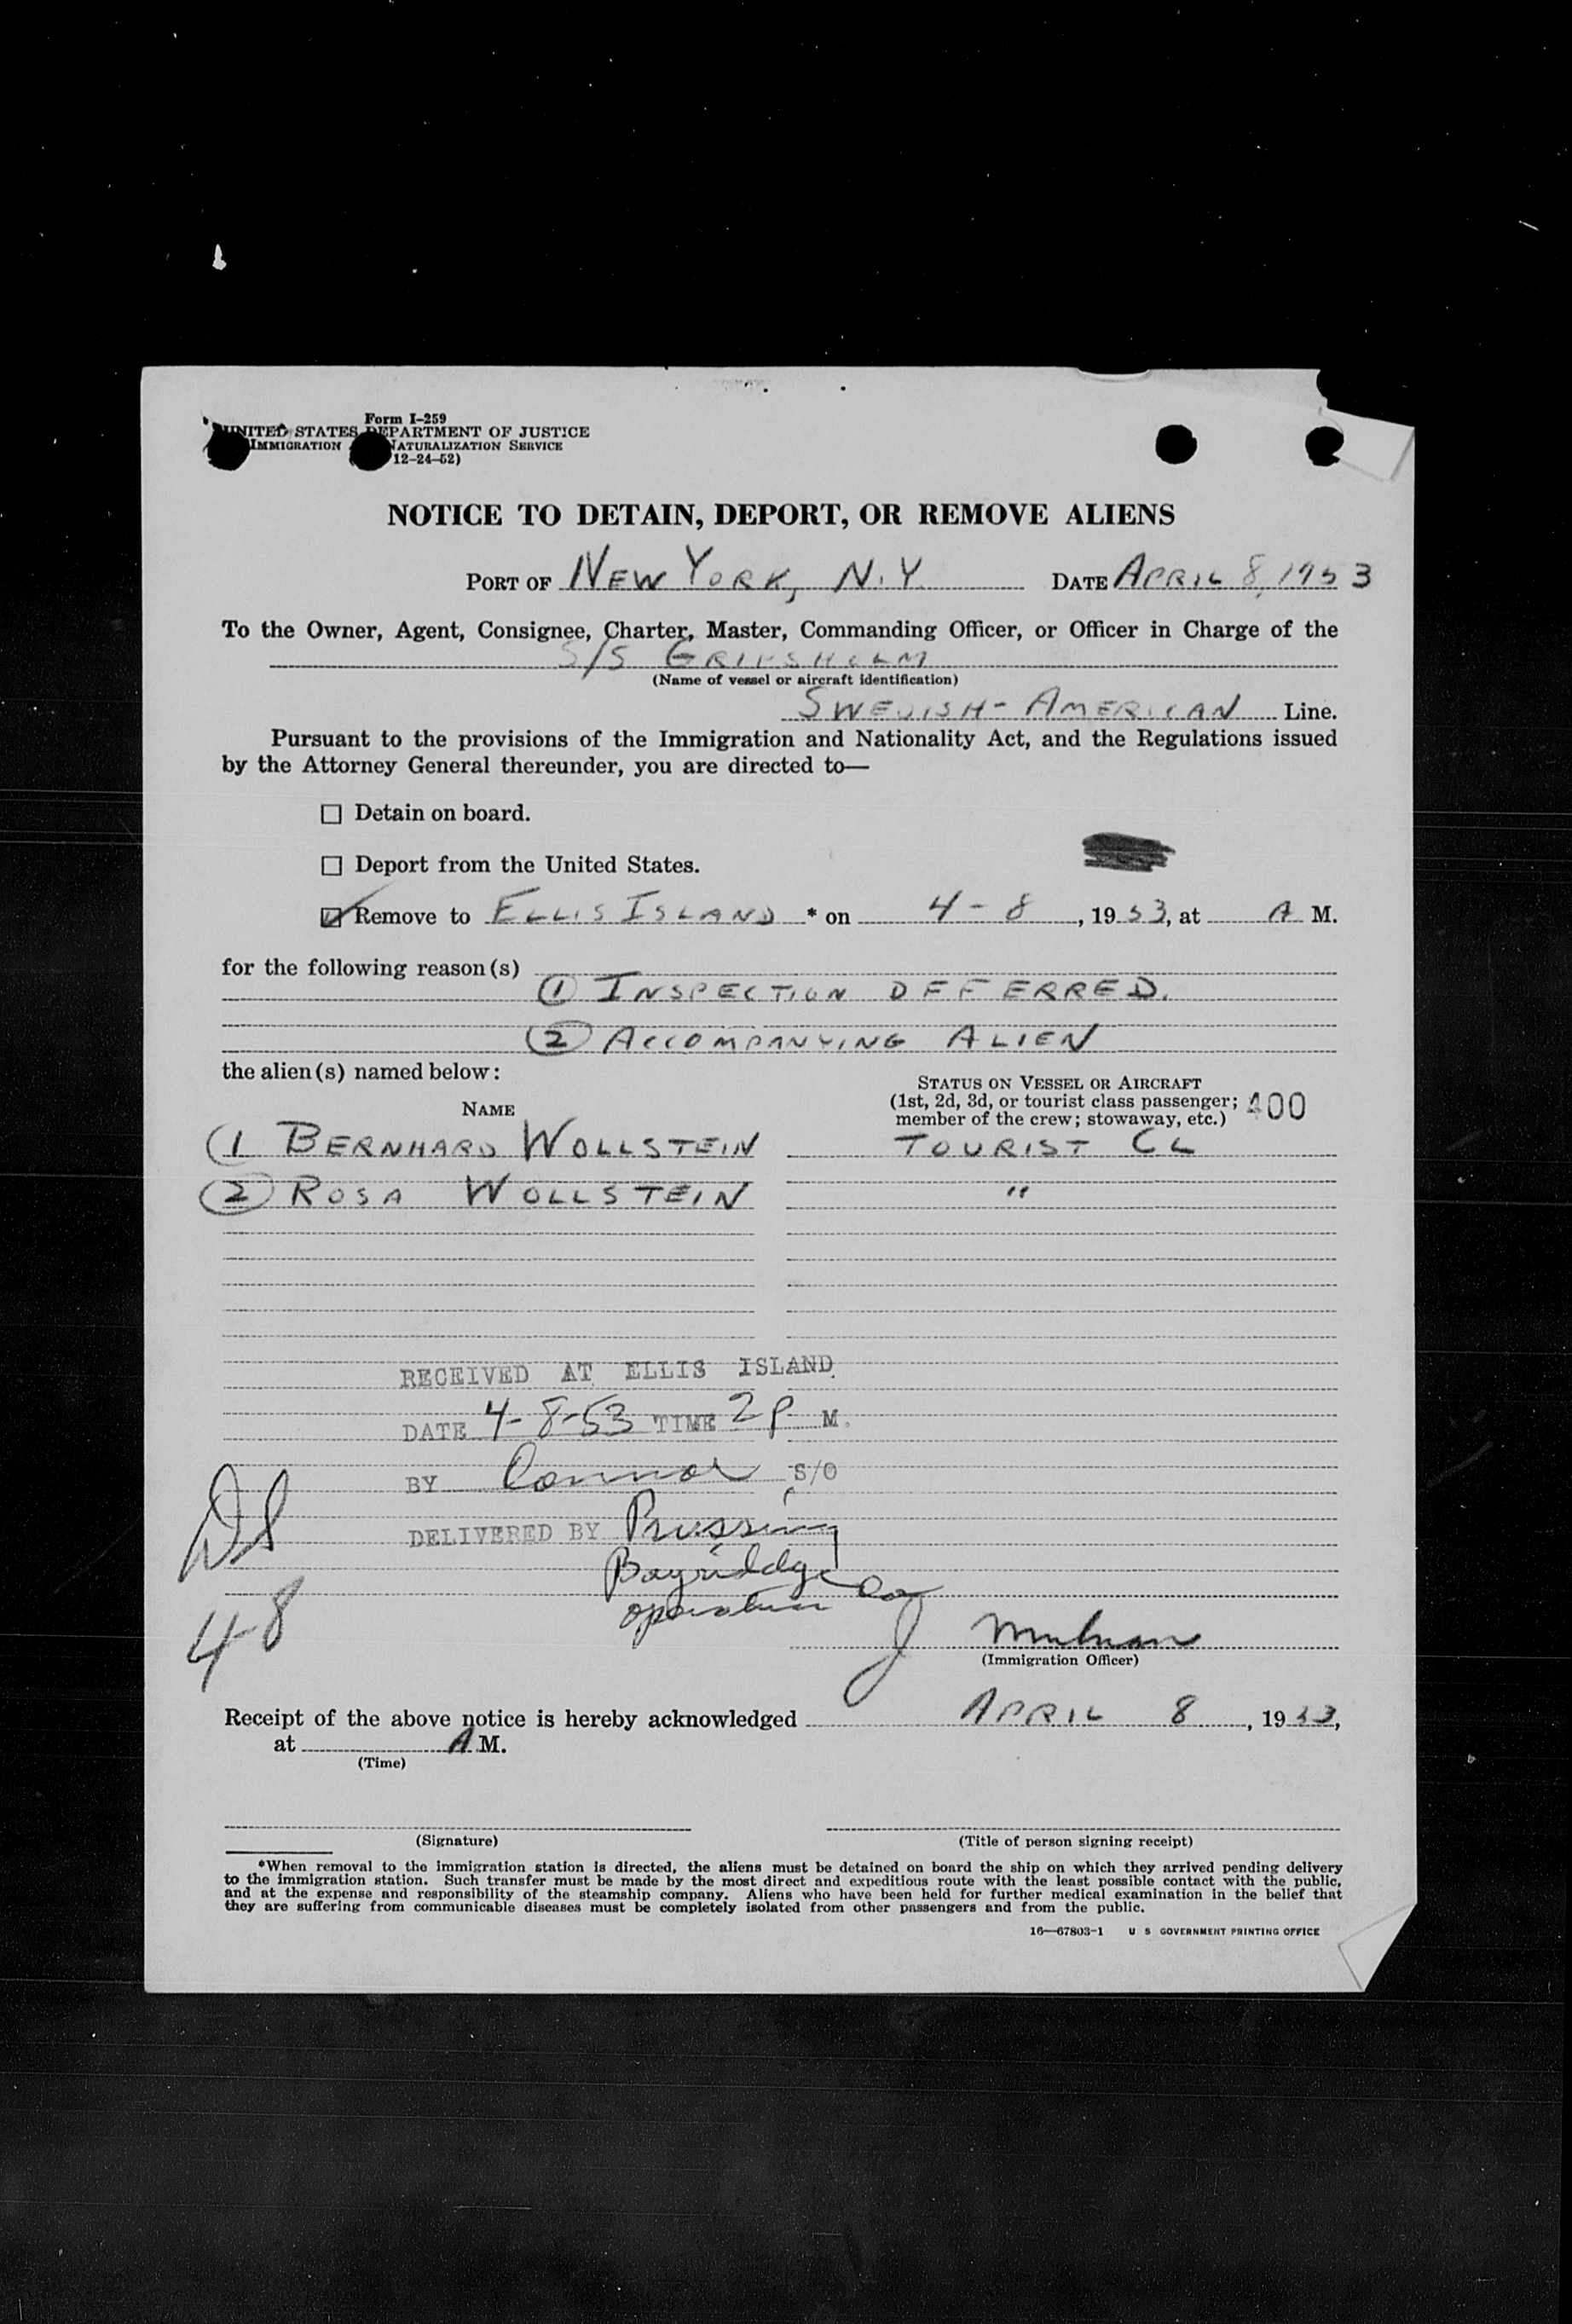 Form I-259
UNITED STATES DEPARTMENT OF JUSTICE
IMMIGRATION NATURALIZATION SERVICE
12-24-52)
NOTICE TO DETAIN, DEPORT, OR REMOVE ALIENS
PORT OF NEW YORK, N.Y. DATE APRIL 8, 1953
To the Owner, Agent, Consignee, Charter, Master, Commanding Officer, or Officer in Charge of the
S/S GRIPSHOLM
(Name of vessel or aircraft identification)
SWEDISH-AMERICAN Line.
Pursuant to the provisions of the Immigration and Nationality Act, and the Regulations issued
by the Attorney General thereunder, you are directed to—
Detain on board.
Deport from the United States.
Remove to ELLIS ISLAND * on 4-8, 1953, at A M.
for the following reason(s)
① INSPECTION DEFERRED.
② ACCOMPANYING ALIEN
the alien(s) named below:
STATUS ON VESSEL OR AIRCRAFT
NAME (1st, 2d, 3d, or tourist class passenger; 400
member of the crew; stowaway, etc.)
① BERNHARD WOLLSTEIN TOURIST CL
② ROSA WOLLSTEIN "
RECEIVED AT ELLIS ISLAND
DATE 4-8-53 TIME 2 P M.
BY Connor S/O
DELIVERED BY Prussing
Bayridge
operation Co
4-8
(Immigration Officer)
Receipt of the above notice is hereby acknowledged APRIL 8, 1953,
at A M.
(Time)
(Signature) (Title of person signing receipt)
*When removal to the immigration station is directed, the aliens must be detained on board the ship on which they arrived pending delivery
to the immigration station. Such transfer must be made by the most direct and expeditious route with the least possible contact with the public,
and at the expense and responsibility of the steamship company. Aliens who have been held for further medical examination in the belief that
they are suffering from communicable diseases must be completely isolated from other passengers and from the public.
16—67803-1 U S GOVERNMENT PRINTING OFFICE